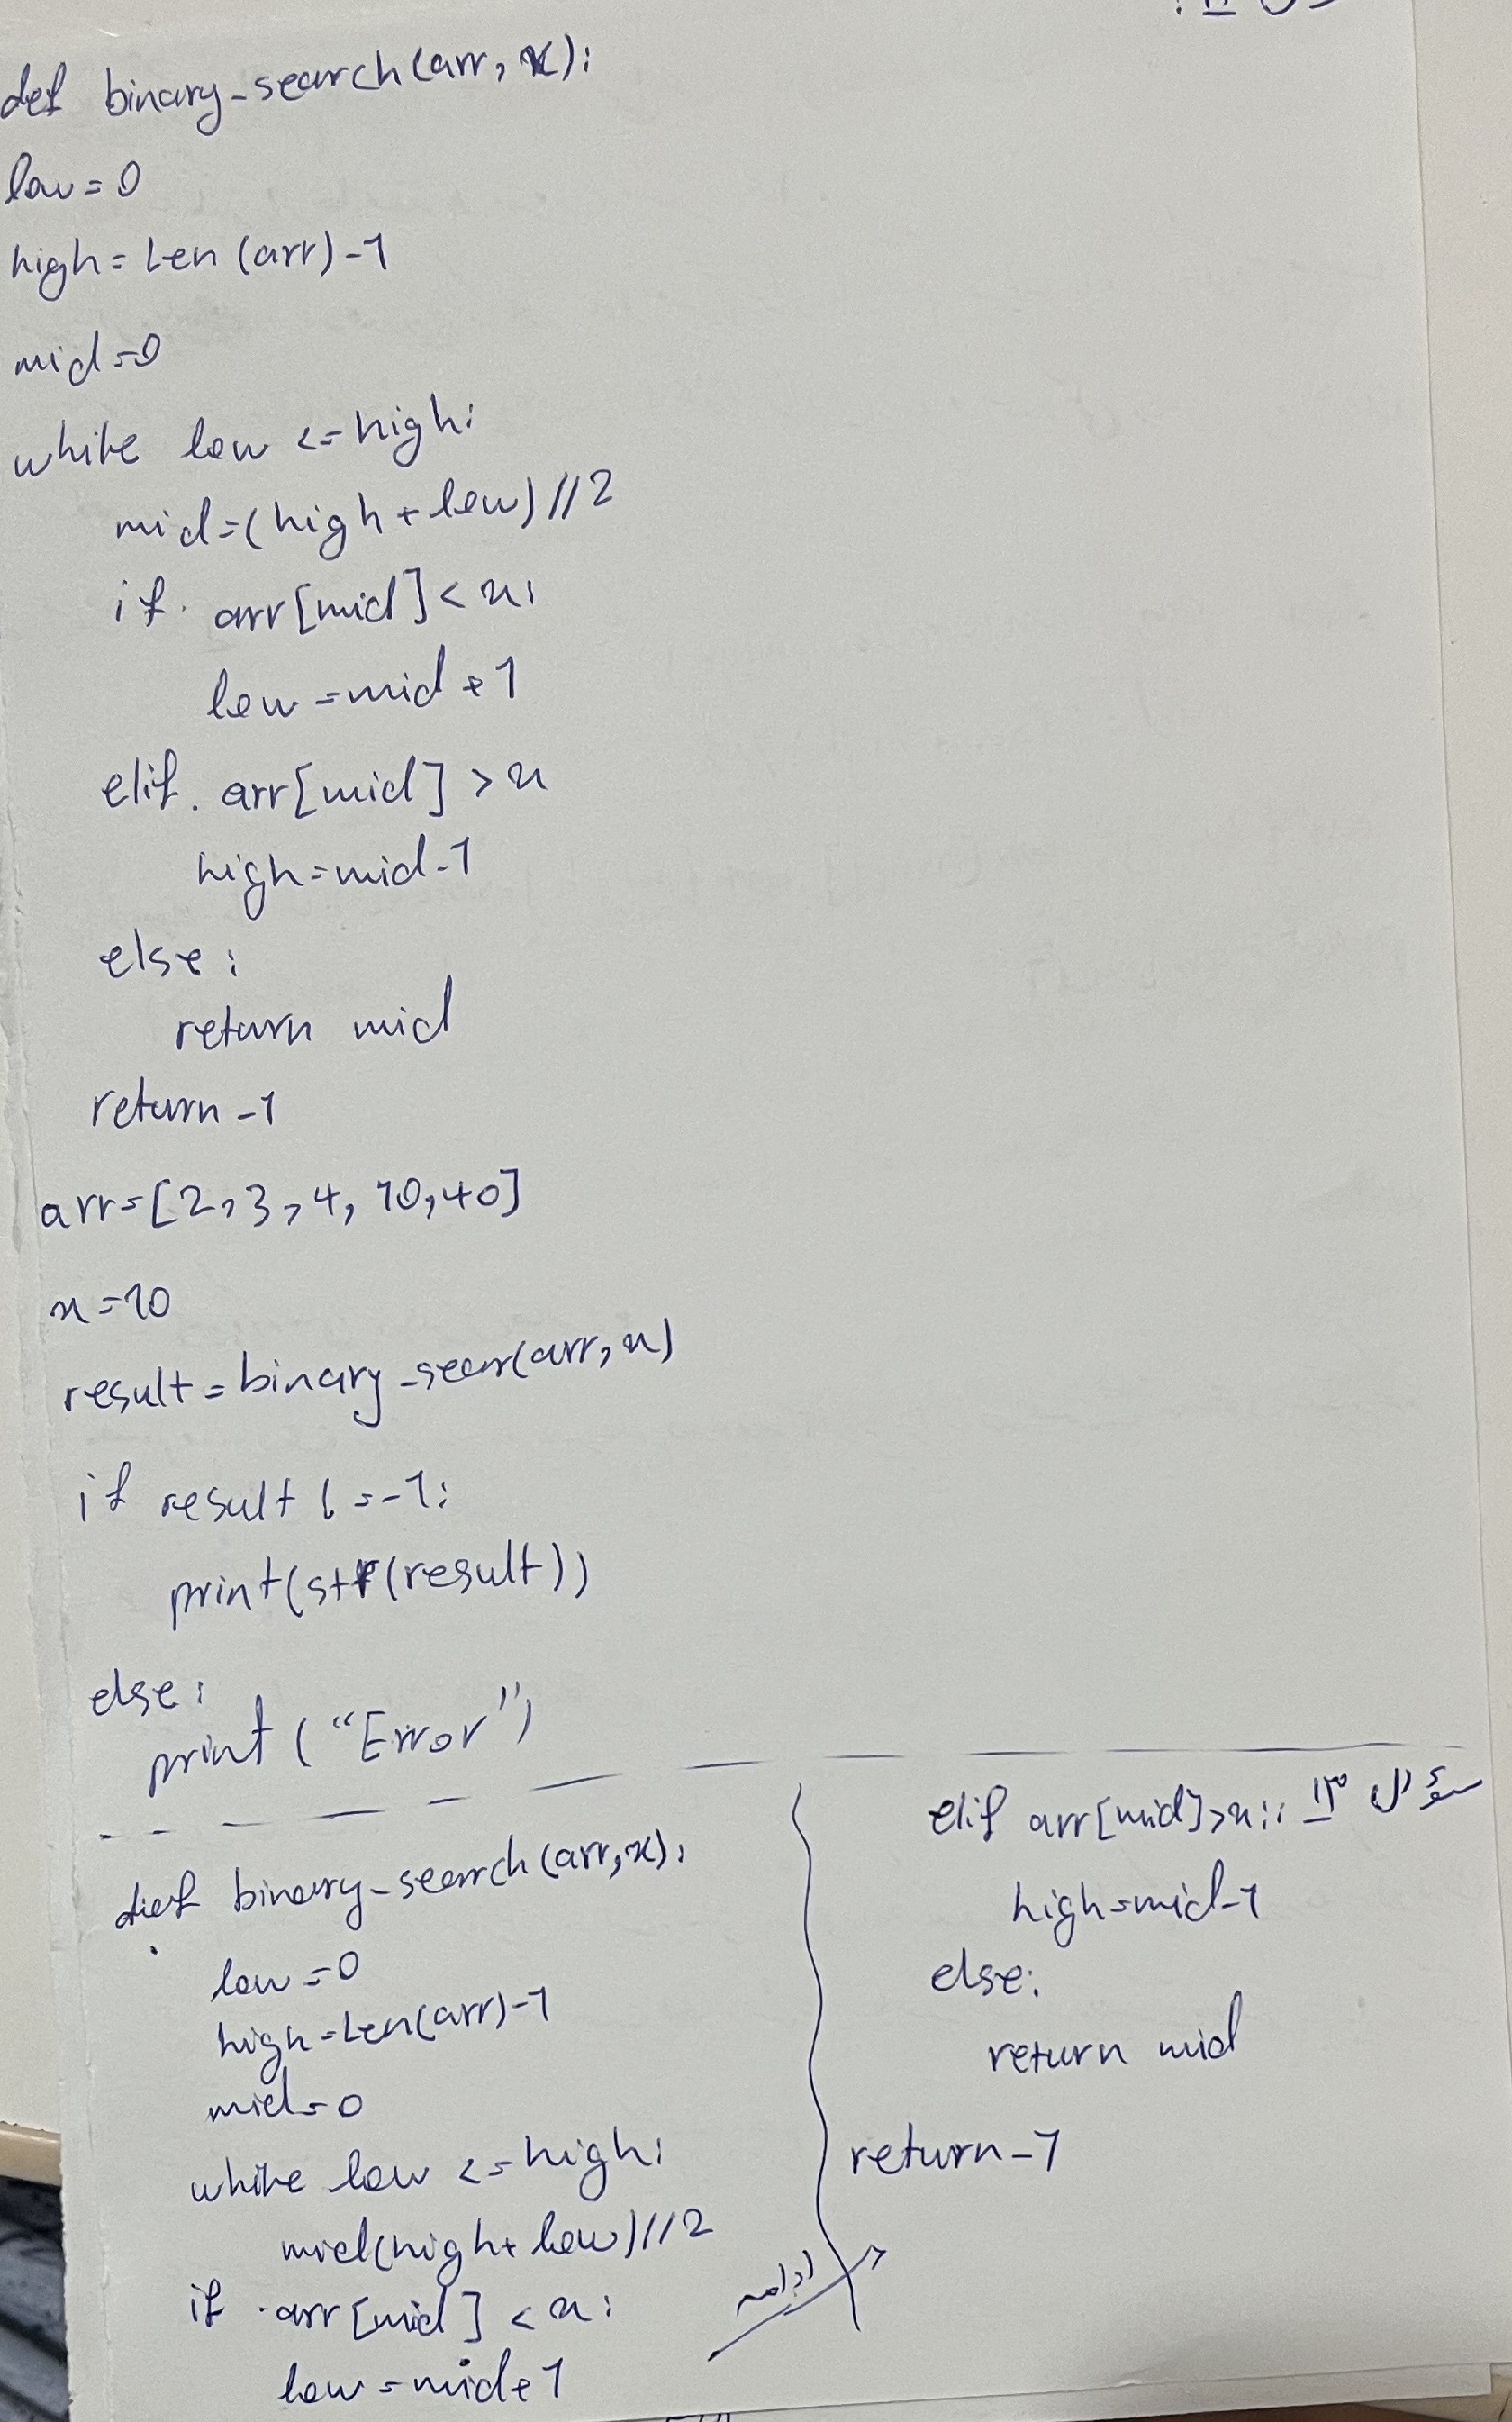 def binary_search(arr, x):
low=0
high=len(arr)-1
mid=0
while low <=high:
mid=(high+low)//2
if arr[mid]<x:
low=mid+1
elif arr[mid]>x
high=mid-1
else:
return mid
return-1
arr=[2,3,4,10,40]
x=10
result=binary_sear(arr,x)
if result !=-1:
print(str(result))
else:
print("Error")
def binary_search(arr,x):
low=0
high=len(arr)-1
mid=0
while low <=high:
mid(high+low)//2
if arr[mid] <x:
low=mid+1
ادامه
سؤال ۱۳:
elif arr[mid]>x:
high=mid-1
else:
return mid
return-1